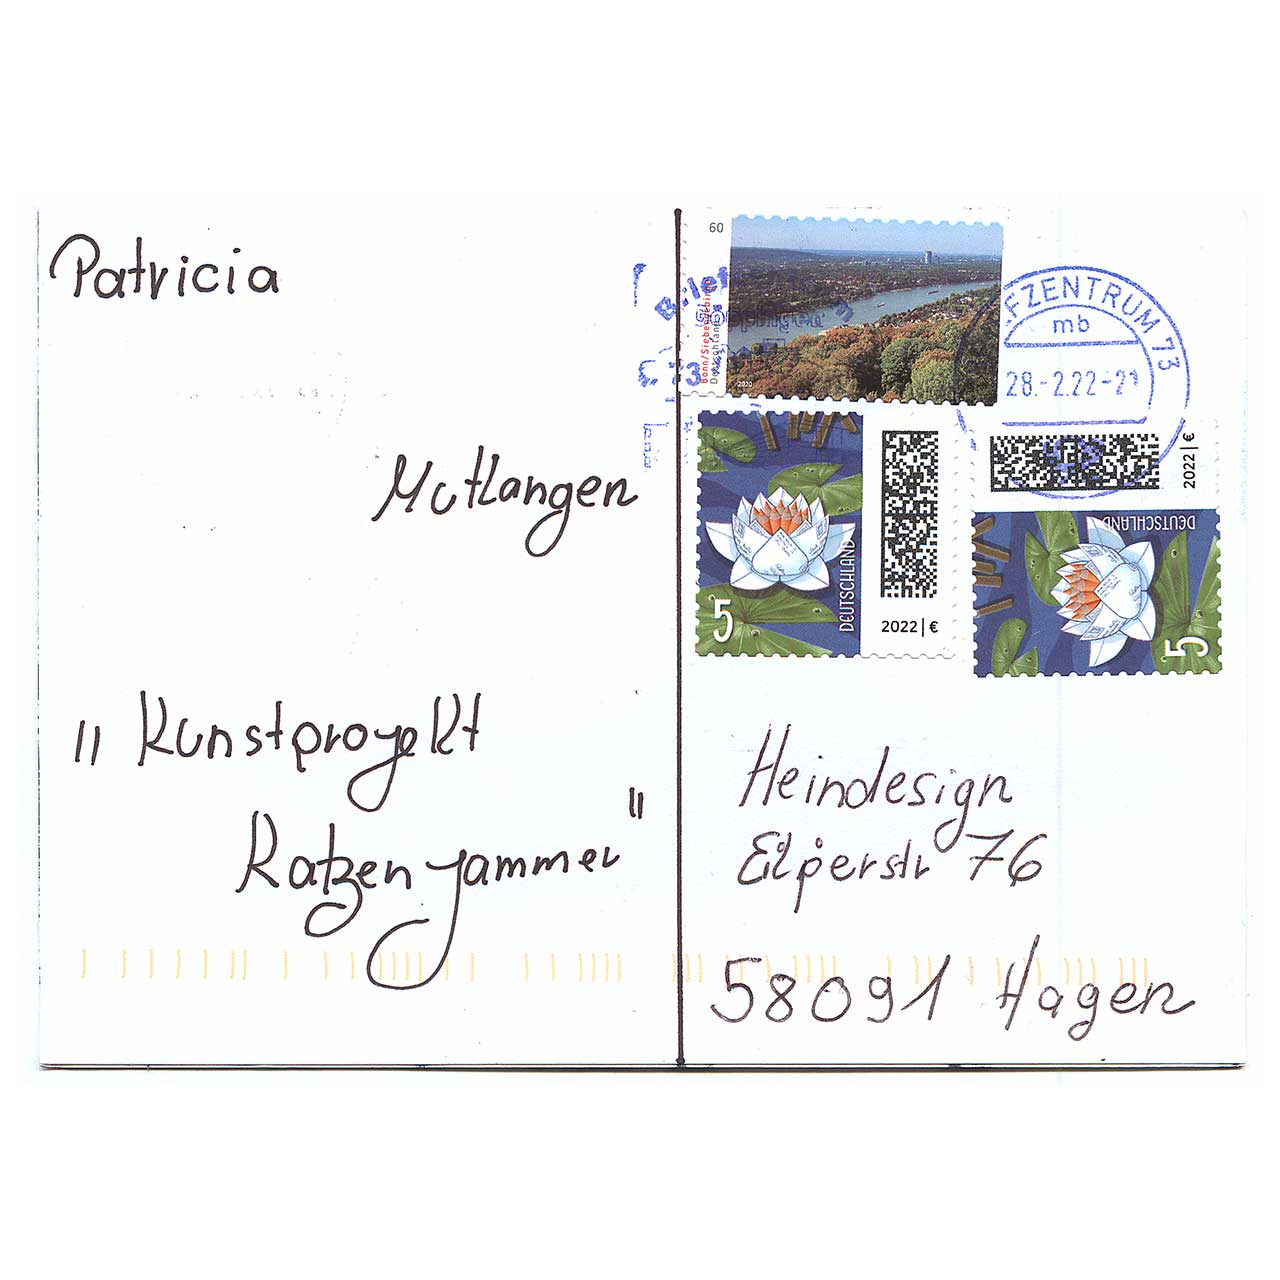 Patricia
Mutlangen
" Kunstproyekt
Katzenyammer "
60
Bonn/Siebengebirge
Deutschland
2020
Brief
73
FZENTRUM 73
mb
28.-2.22-21
5
DEUTSCHLAND
2022 | €
2022 | €
DEUTSCHLAND
5
Heindesign
Eilperstr 76
58091 Hagen